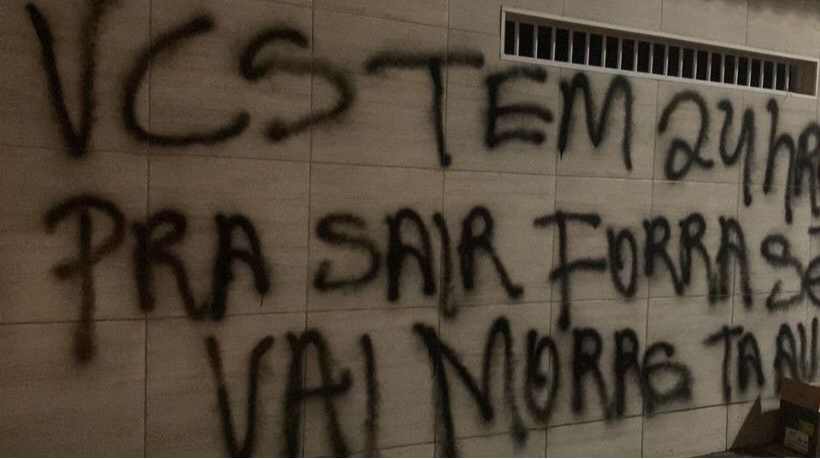 VCS TEM 24hR
PRA SAIR FORRA SE
VAI MORRE TA AU